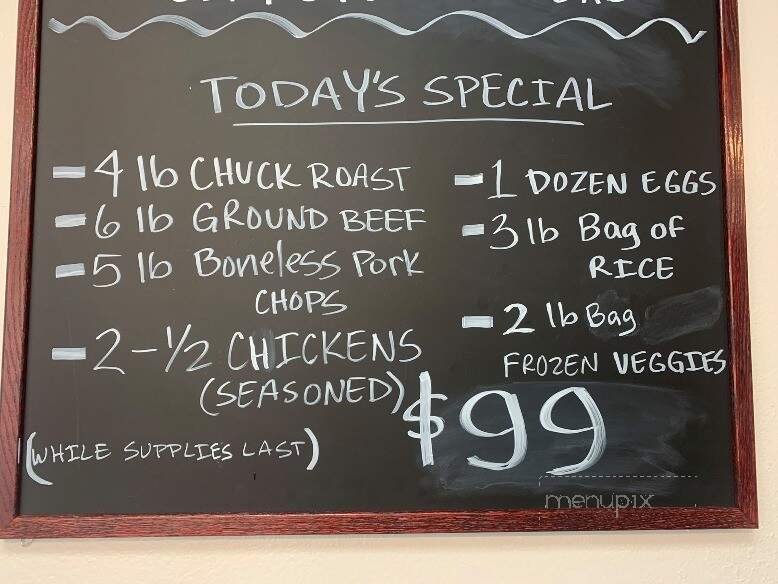 TODAY'S SPECIAL
- 4 lb CHUCK ROAST
- 6 lb GROUND BEEF
- 5 lb Boneless Pork
CHOPS
- 2 - 1/2 CHICKENS
(SEASONED)
(WHILE SUPPLIES LAST)
- 1 DOZEN EGGS
- 3 lb Bag of
RICE
- 2 lb Bag
FROZEN VEGGIES
$99
menupix